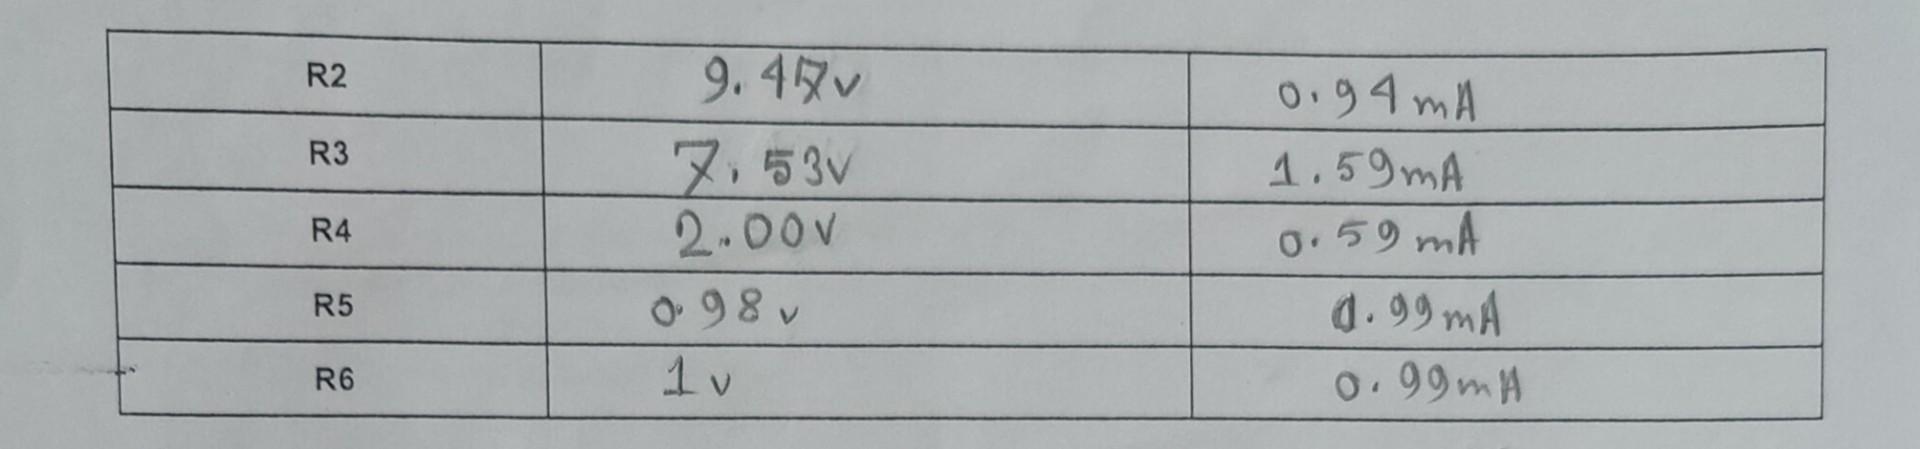 R2 9.47v 0.94mA
R3 7.53v 1.59mA
R4 2.00v 0.59mA
R5 0.98v 0.99mA
R6 1v 0.99mA